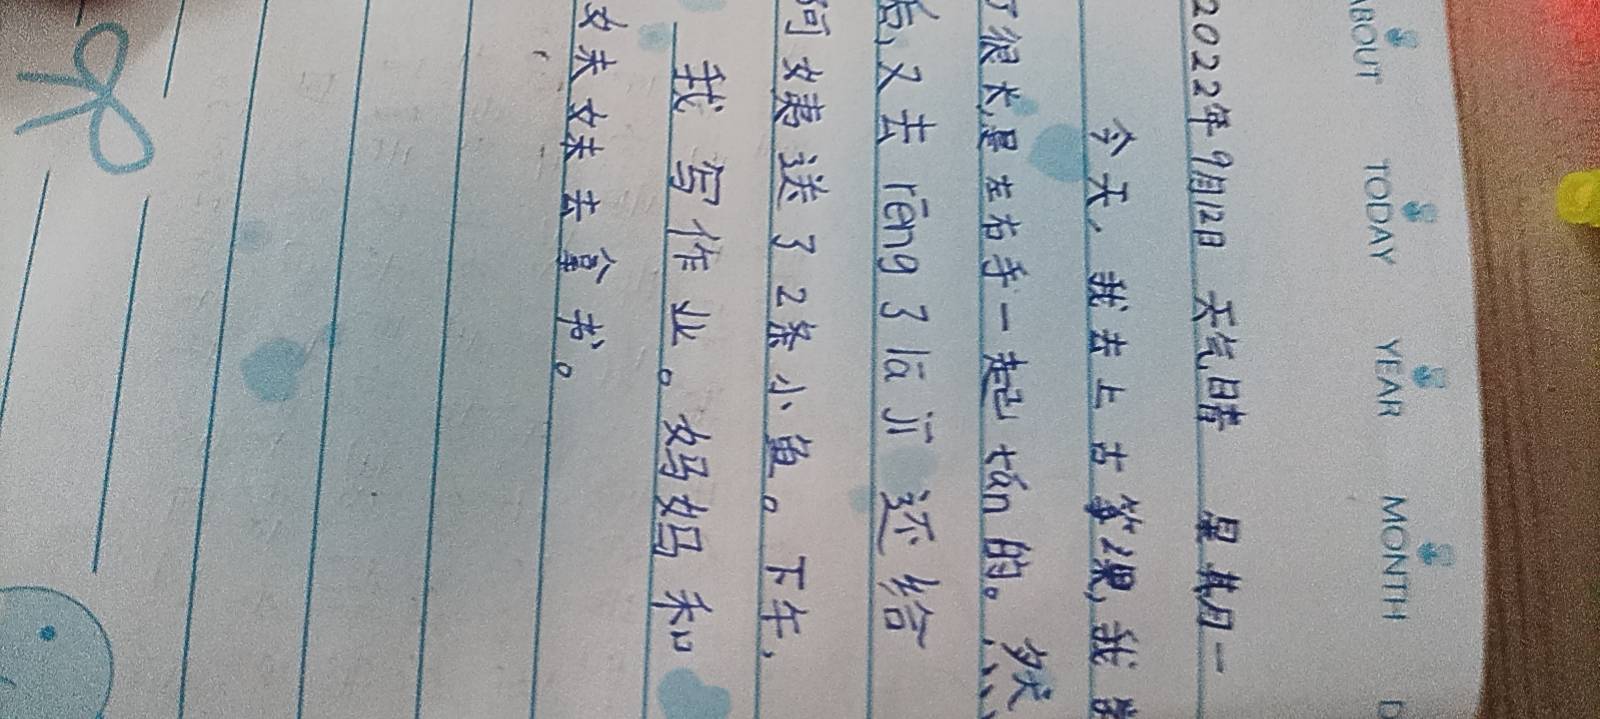 ABOUT TODAY YEAR MONTH D
2022年9月12日 天气晴 星期一
今天,我去上古筝课,我学
了很长,是左右手一起tán的。然
后,又去rēng了lā jī还给
阿姨送了2条小鱼。下午,
我写作业。妈妈和
妹妹去拿书。